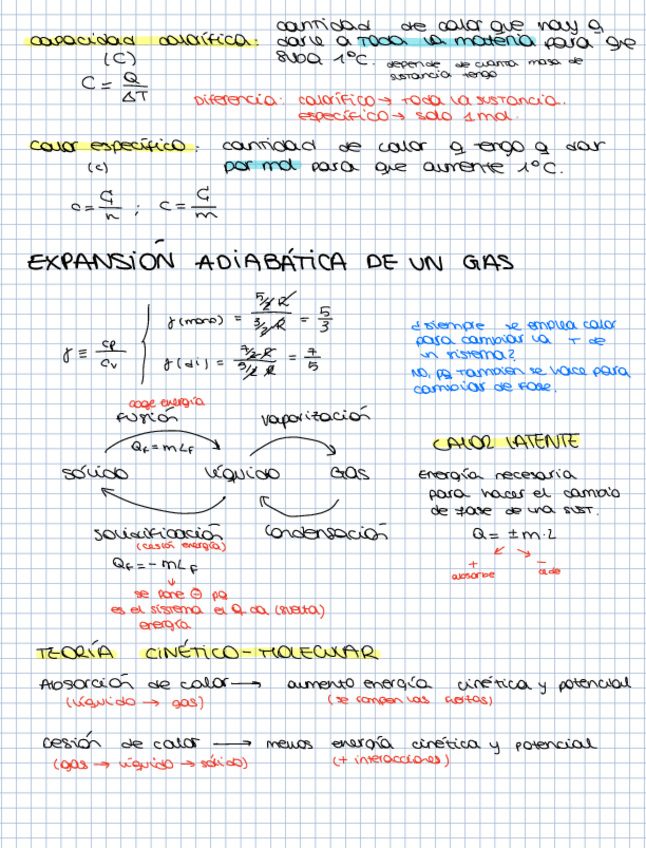 capacidad calorífica: cantidad de calor que hay q
darle a toda la materia para que
(C) suba 1°C. depende de cuanta masa de
sustancia tengo
C = Q/ΔT
Diferencia: calorífico → toda la sustancia.
específico → solo 1 mol.
calor específico: cantidad de calor q tengo q dar
(c) por mol para que aumente 1°C.
c = C/n ; c = C/m
EXPANSIÓN ADIABÁTICA DE UN GAS
γ ≡ cp/cv
γ(mono) = 5/2 R / 3/2 R = 5/3
γ(di) = 7/2 R / 5/2 R = 7/5
¿siempre se emplea calor
para cambiar la T de
un sistema?
No, pq también se hace para
cambiar de fase.
coge energía
fusión vaporización
QF = mLF
sólido líquido GAS
solidificación condensación
(cesión energía)
QF = -mLF
se pone ⊖ pq
es el sistema el q da (suelta)
energía
CALOR LATENTE
Energía necesaria
para hacer el cambio
de fase de una sust.
Q = ±m·L
+ -
absorbe cede
TEORÍA CINÉTICO-MOLECULAR
Absorción de calor → aumento energía cinética y potencial
(líquido → gas) (se rompen las)
cesión de calor → menos energía cinética y potencial
(gas → líquido → sólido) (+ interacciones)